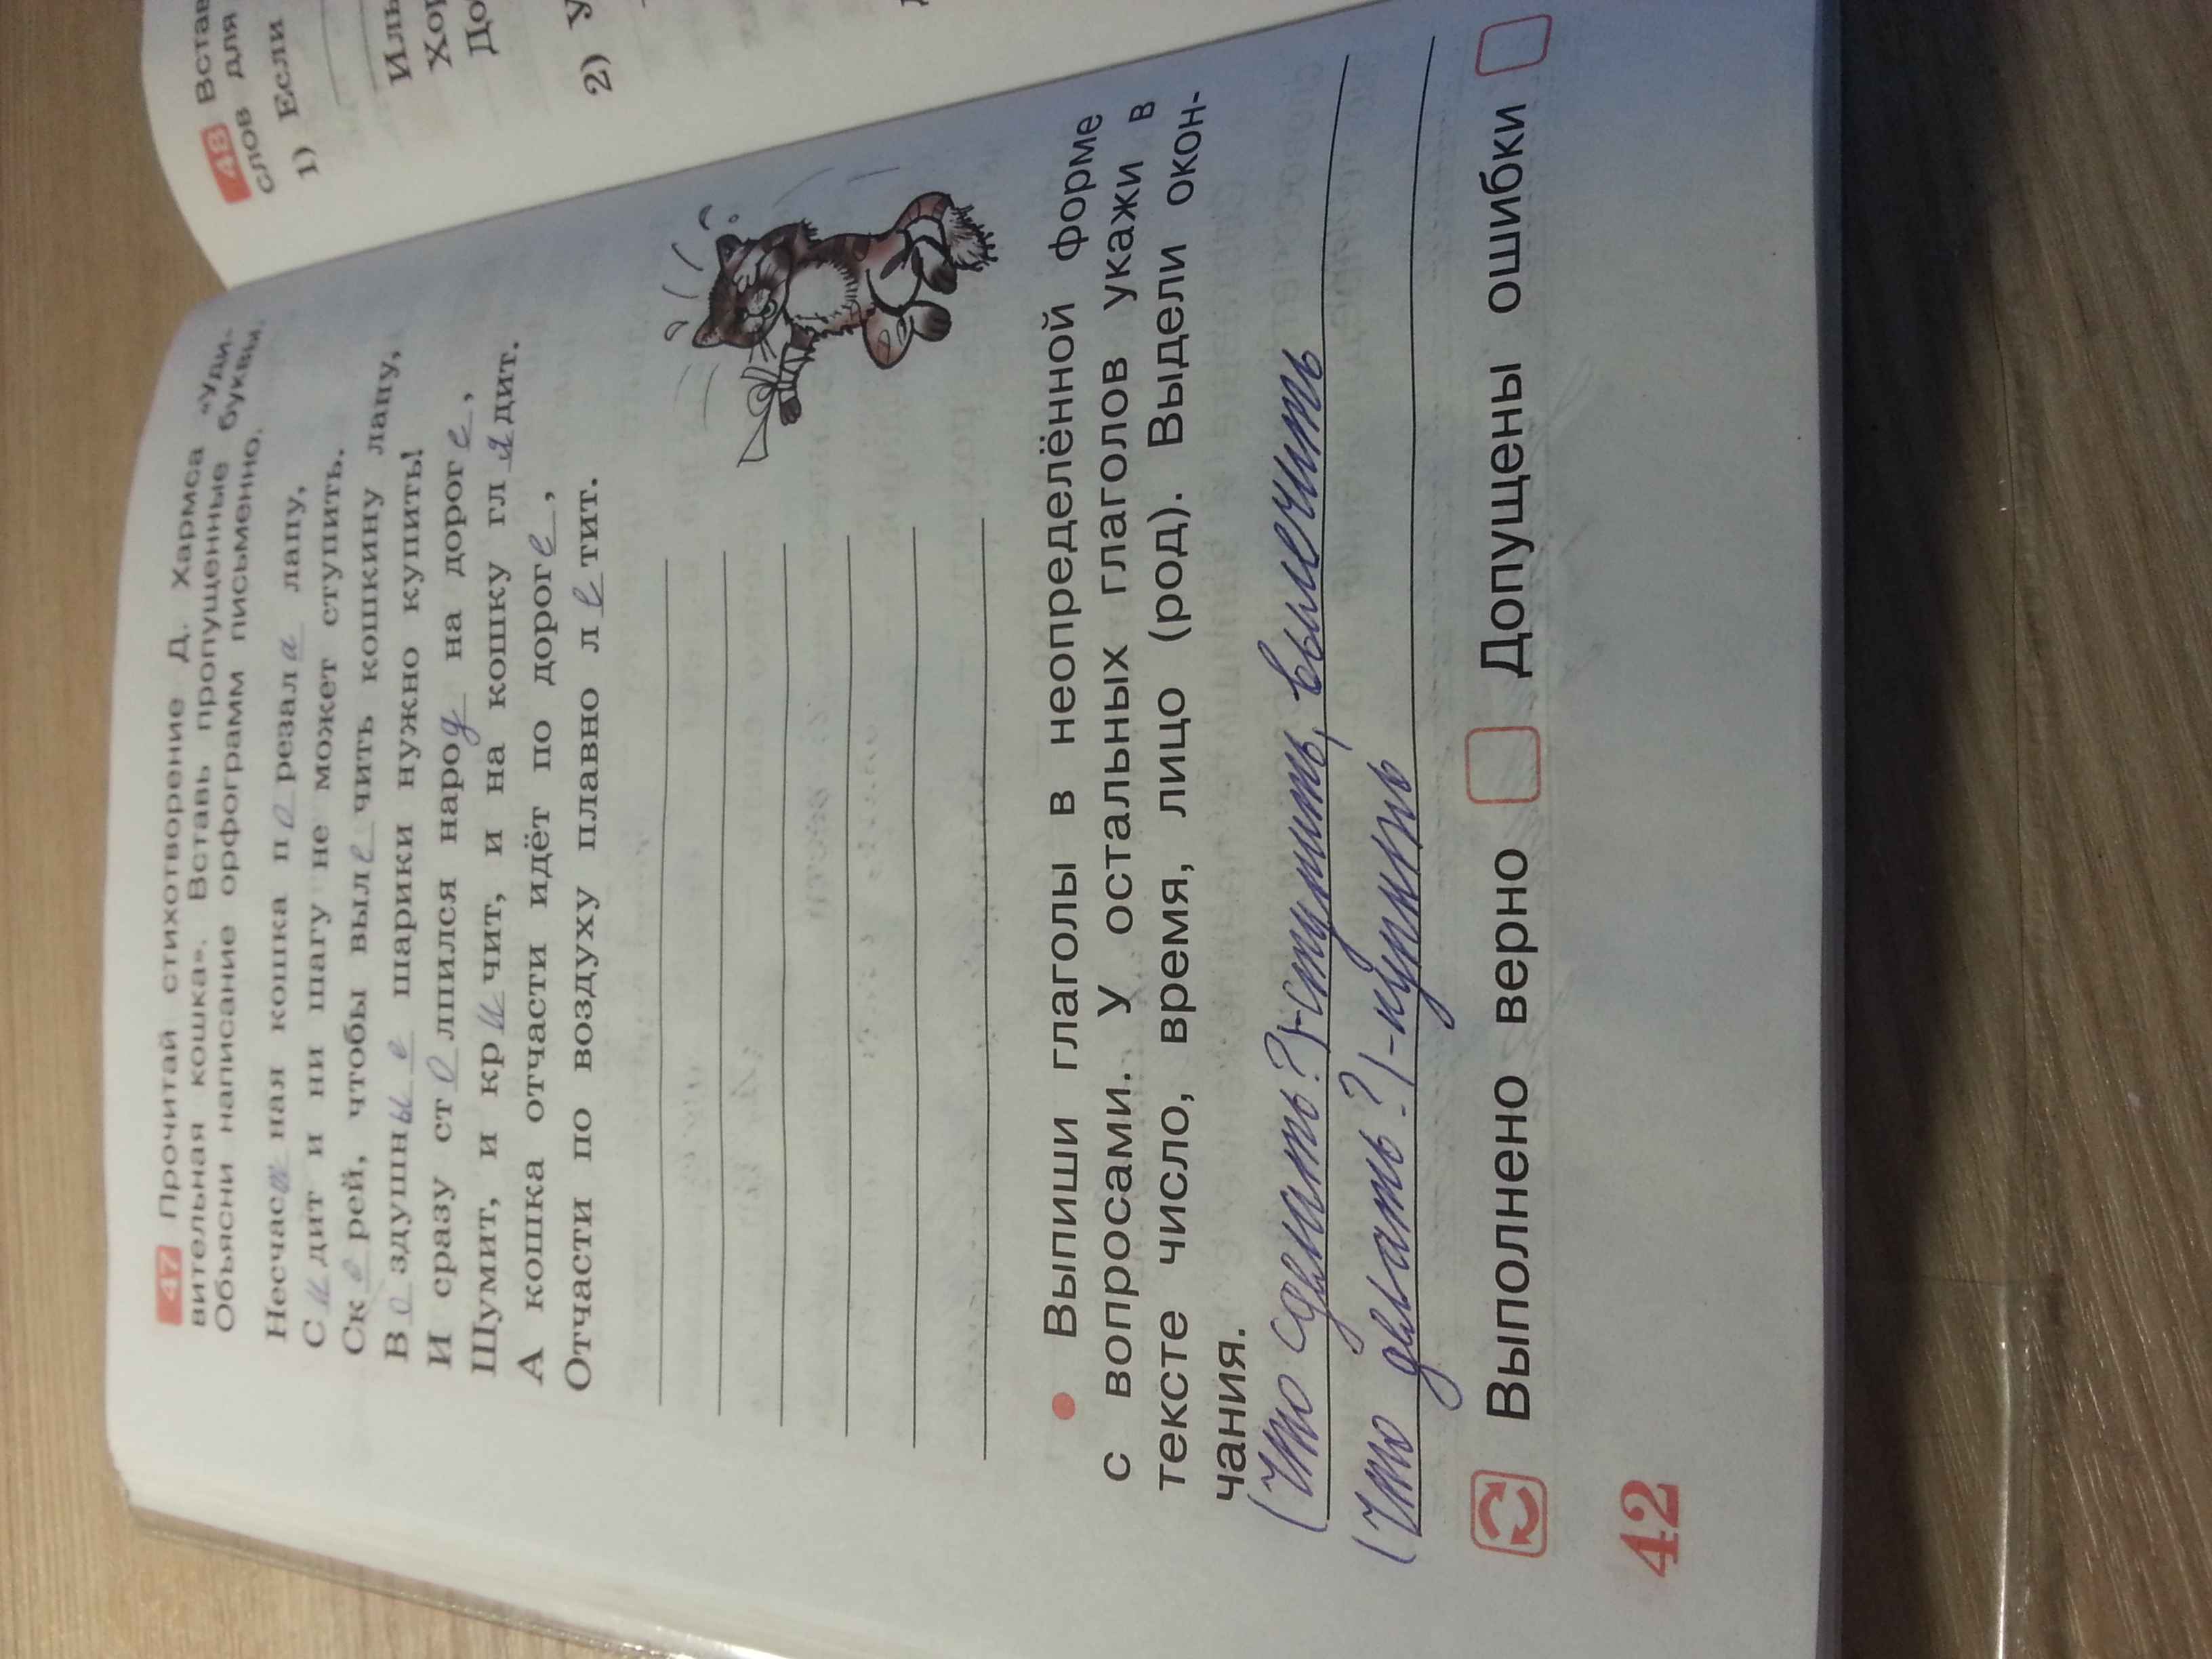 47 Прочитай стихотворение Д. Хармса «Уди-
вительная кошка». Вставь пропущенные буквы.
Объясни написание орфограмм письменно.
Несчастная кошка порезала лапу,
Сидит и ни шагу не может ступить.
Скорей, чтобы вылечить кошкину лапу,
Воздушные шарики нужно купить!
И сразу столпился народ на дороге,
Шумит, и кричит, и на кошку глядит.
А кошка отчасти идёт по дороге,
Отчасти по воздуху плавно летит.
• Выпиши глаголы в неопределённой форме
с вопросами. У остальных глаголов укажи в
тексте число, время, лицо (род). Выдели окон-
чания.
(Что сделать?)-ступить, вылечить
(Что делать?)-купить
Выполнено верно Допущены ошибки
42
48 Встав
слов для
1) Если
Иль
Хор
До
2) У